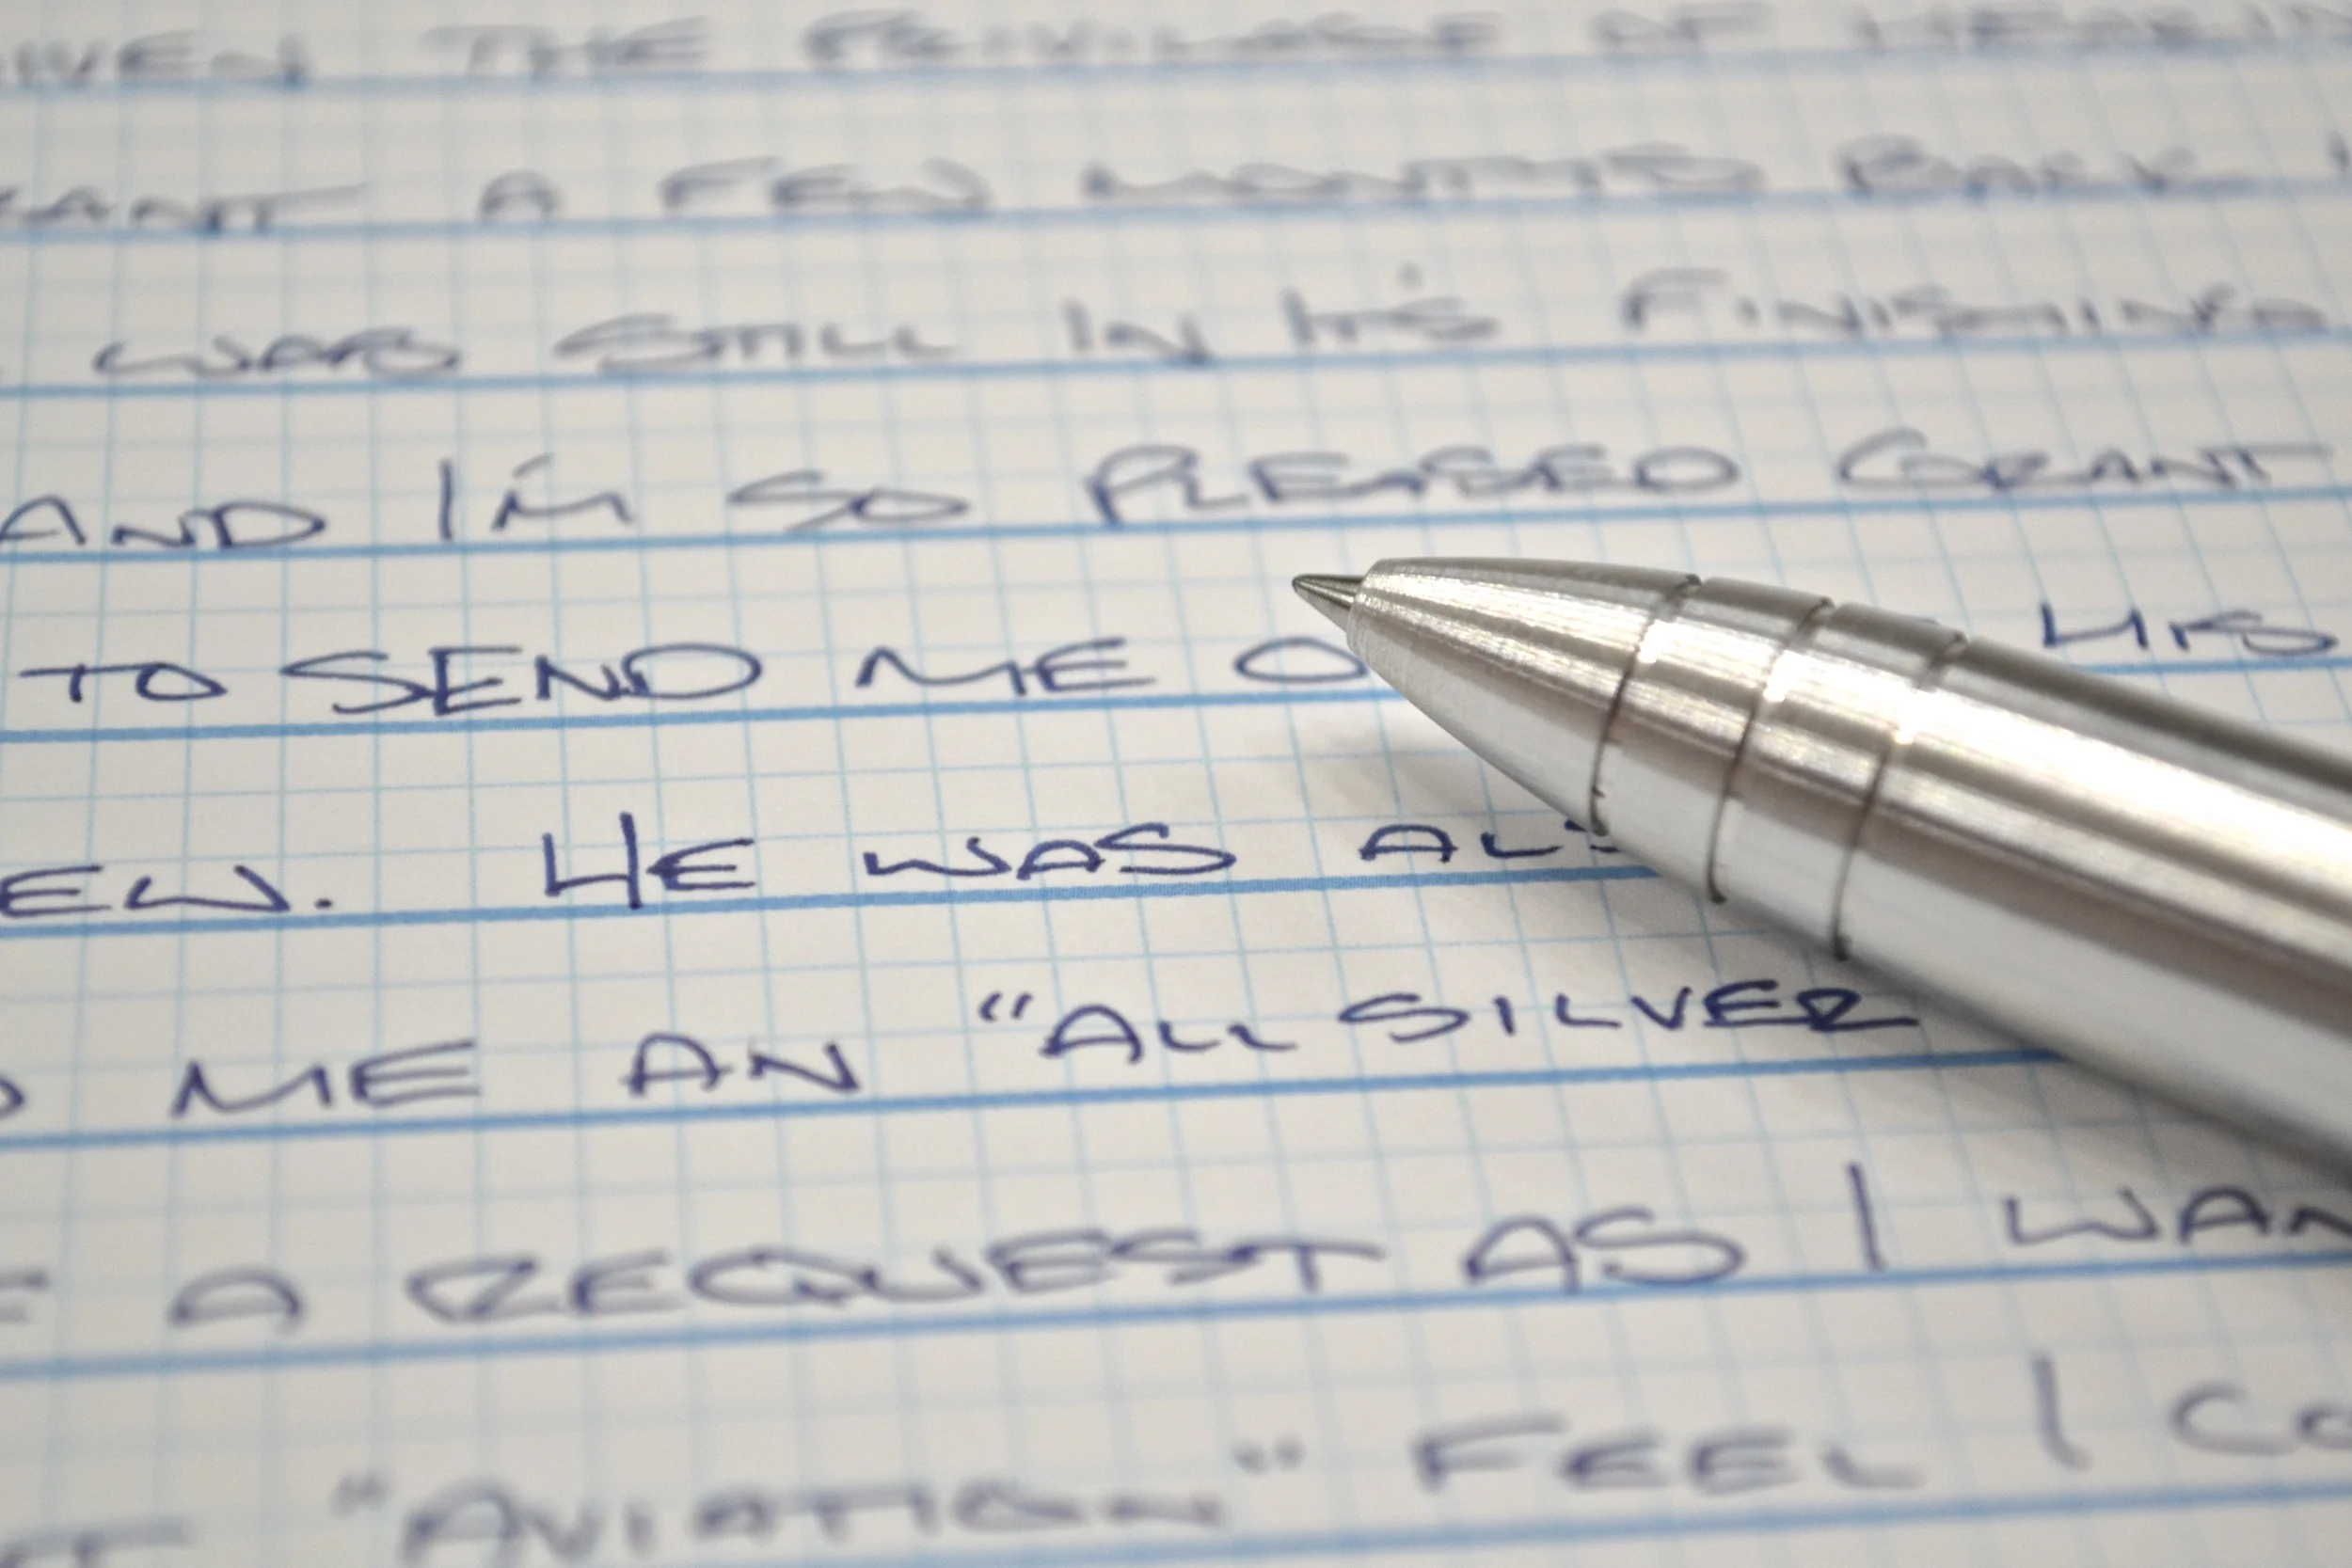 IVEN THE PRIVILEGE OF HEARIN
RANT A FEW MONTHS BACK
WAS STILL IN IT'S FINISHING
AND I'M SO PLEASED GRANT
TO SEND ME O HIS
EW. HE WAS ALS
ME AN "ALL SILVER
A REQUEST AS I WAN
"AVIATION" FEEL I CO